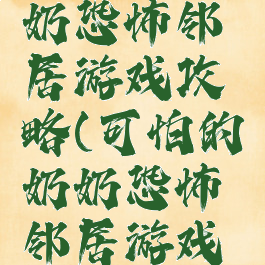 奶恐怖邻
居游戏攻
略(可怕的
奶奶恐怖
邻居游戏